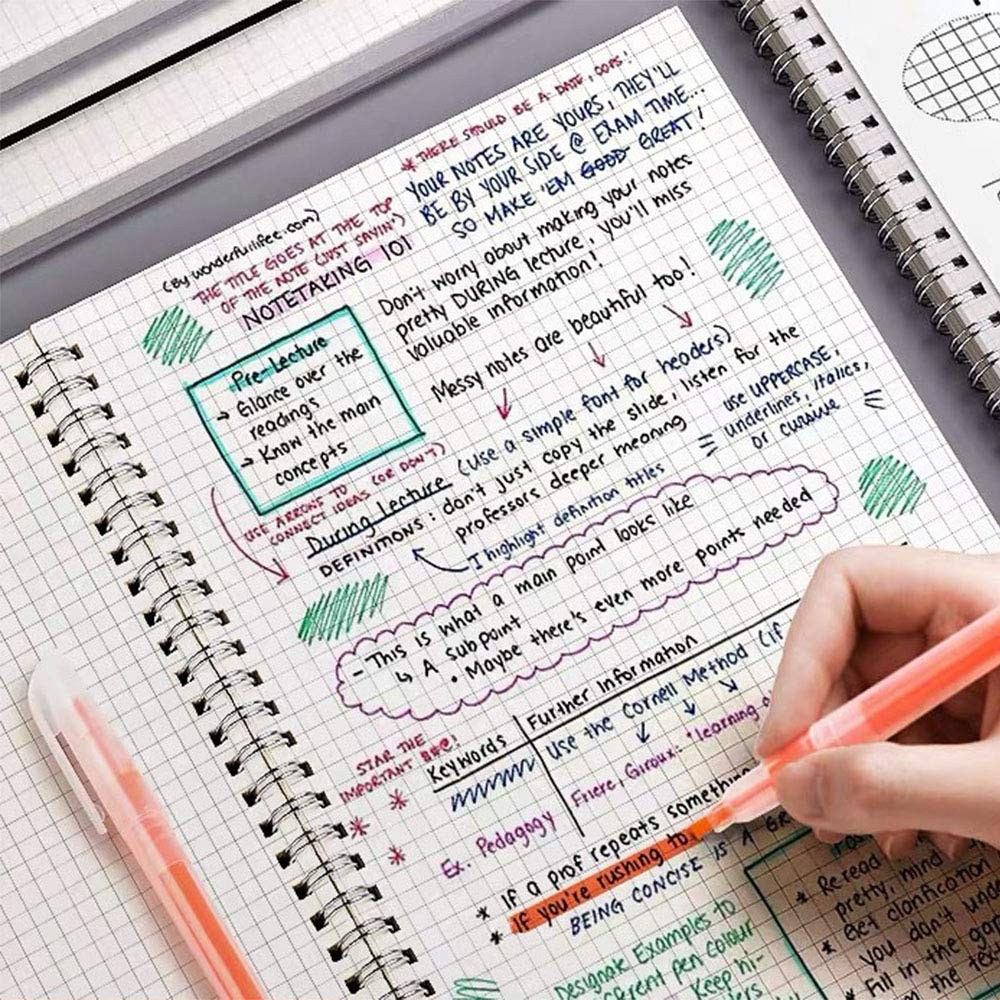 * THERE SHOULD BE A DATE, OOPS!
YOUR NOTES ARE YOURS, THEY'LL
BE BY YOUR SIDE @ EXAM TIME...
SO MAKE 'EM GOOD GREAT!
(By wonderfullifee.com)
THE TITLE GOES AT THE TOP
OF THE NOTE (JUST SAYIN')
NOTETAKING 101
Don't worry about making your notes
pretty DURING lecture, you'll miss
valuable information!
Messy notes are beautiful too!
Pre-Lecture
→ Glance over the
readings
→ Know the main
concepts
USE ARROWS TO
CONNECT IDEAS (OR DON'T)
During Lecture (Use a simple font for headers)
DEFINITIONS: don't just copy the slide, listen for the
professors deeper meaning
I highlight definition titles
USE UPPERCASE,
underlines, italics,
or cursive
- This is what a main point looks like
↳ A subpoint
• Maybe there's even more points needed
STAR THE
IMPORTANT
Keywords
Further Information
Use the Cornell Method (if
Ex. Pedagogy
Friere, Giroux: "learning
* If a prof repeats something
* If you're rushing to
BEING CONCISE IS A
Designate Examples to
pen colour
Keep hi-
* Reread
pretty, mind
* Get clarification
you don't
* Fill in the